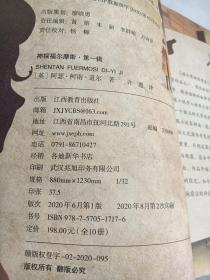 出版策划 廖晓勇
责任校对 杨柳
神探福尔摩斯·第一辑
SHENTAN FUERMOSI DI-YI JI
[英]阿瑟·柯南·道尔 著
出版 江西教育出版社
邮箱 JXJYCBS@163.com
地址 江西省南昌市抚河北路291号
网址 www.jxeph.com
电话 0791-86710427
经销 各地新华书店
印刷 武汉兆旭印务有限公司
规格 880mm×1230mm 1/32
印张 37.5
版次 2020年6月第1版 2020年8月第2次印刷
书号 ISBN 978-7-5705-1717-6
定价 198.00元(全10册)
赣版权登字-02-2020-095
版权所有 翻版必究